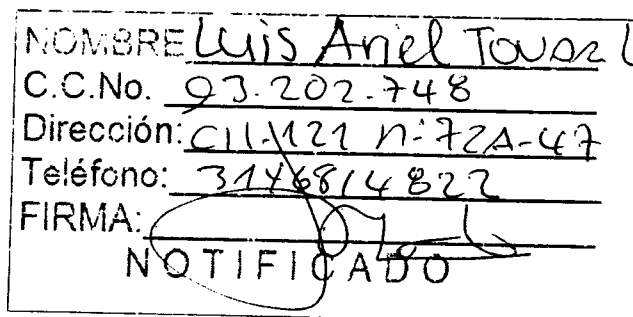 NOMBRE Luis Ariel Tovar L
C.C.No. 93.202.748
Dirección: Cll-121 n-72A-47
Teléfono: 3146814822
FIRMA:
NOTIFICADO